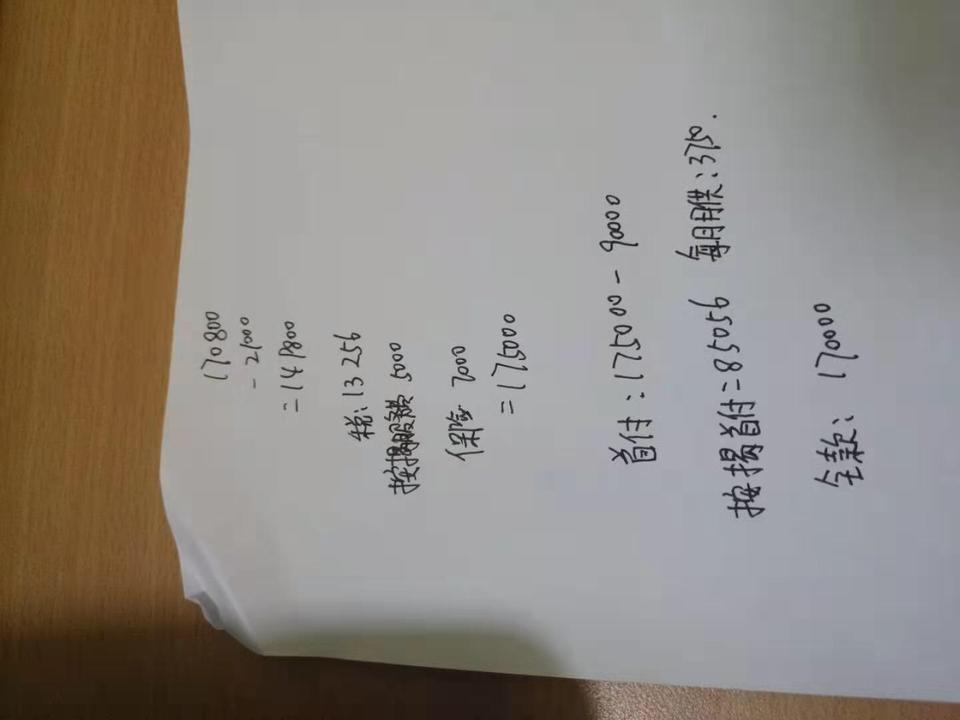 170800
- 21000
= 149800
税: 13256
按揭服务费 5000
保险 7000
= 175000
首付: 175000 - 90000
按揭首付 = 85056 每月月供: 3750.
全款: 170000